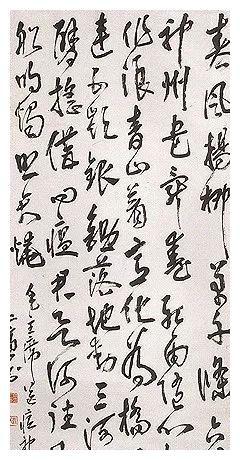 春風楊柳萬千條六
神州盡舜堯紅雨隨心
作浪青山着意化為橋
連五嶺銀鋤落地動三河
臂搖借問瘟君欲何往
船明燭照天燒 毛主席送瘟神